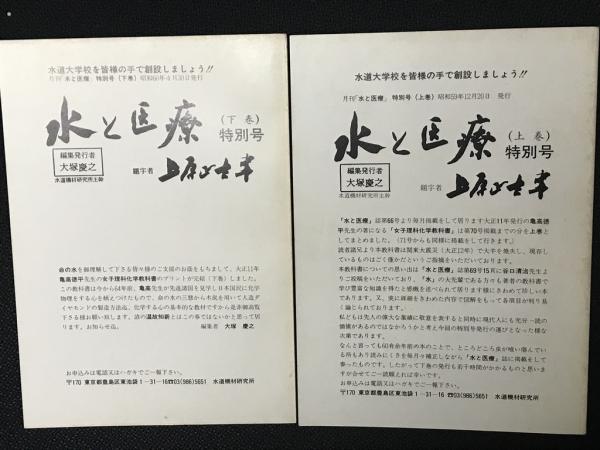 水道大学校を皆様の手で創設しましょう!!
月刊「水と医療」特別号(下巻)昭和60年4月30日発行
水と医療
(下巻)
特別号
編集発行者
大塚慶之
水道機材研究所主幹
題字者
命の水を御理解して下さる皆々様のご支援のお蔭をもちまして、大正11年
亀高徳平先生の女子理科化学教科書のプリントが完結(下巻)しました。
この教科書は今から64年前、亀高先生が先進諸国を見学し日本国民に化学
物理をする心を植えつけたもので、命の水の三態から木炭を用いて人造ダ
イヤモンドの製造方法迄、化学する心の基本的な教材ですから是非御高覧
下さる様お願い致します。昔の温故知新とはこの事ではないかと思って居
ります。お知らせ迄。
編集者 大塚 慶之
お申込みは電話又はハガキでご一報下さい。
〒170 東京都豊島区東池袋1-31-16☎03(986)5651 水道機材研究所
水道大学校を皆様の手で創設しましょう!!
月刊「水と医療」特別号(上巻)昭和59年12月20日 発行
水と医療
(上巻)
特別号
編集発行者
大塚慶之
水道機材研究所主幹
題字者
「水と医療」誌第66号より毎月掲載をして居ります大正11年発行の亀高徳
平先生の著になる「女子理科化学教科書」は第70号掲載までの分を上巻と
してまとめました。(71号からも同様に掲載をして行きます。)
読者諸兄より本教科書は関東大震災(大正12年)で大半を焼失し、現存し
ているものはごく僅かだというご指摘をいただいております。
本教科書についての思い出は「水と医療」誌第69号15頁に谷口清治先生よ
りご投稿をいただいており、「水」の大先輩である方々も著者の教科書で
学び豊富な知識を博したと感懐を述べられて居ります様きわめて珍しい本
であります。又、実に詳細をきわめた内容で図解をもって各項目が判り易
く論じられております。
私どもは先人の偉大な業績に敬意を表すると同時に現代人にも充分一読の
価値があるのではなかろうかと考え今回の特別号発行の運びとなった様な
次第であります。
なんと言っても60有余年前の本のことで、ところどころ虫が喰い傷んでい
る所もあり読みにくきを毎月々補足しながら「水と医療」誌に掲載をして
参ったものです。したがって下巻の発行も若干時間がかかるものと思いま
すが合せてご一読願えれば幸いです。
お申込みは電話又はハガキでご一報下さい。
〒170 東京都豊島区東池袋1-31-16 ☎03(986)5651 水道機材研究所